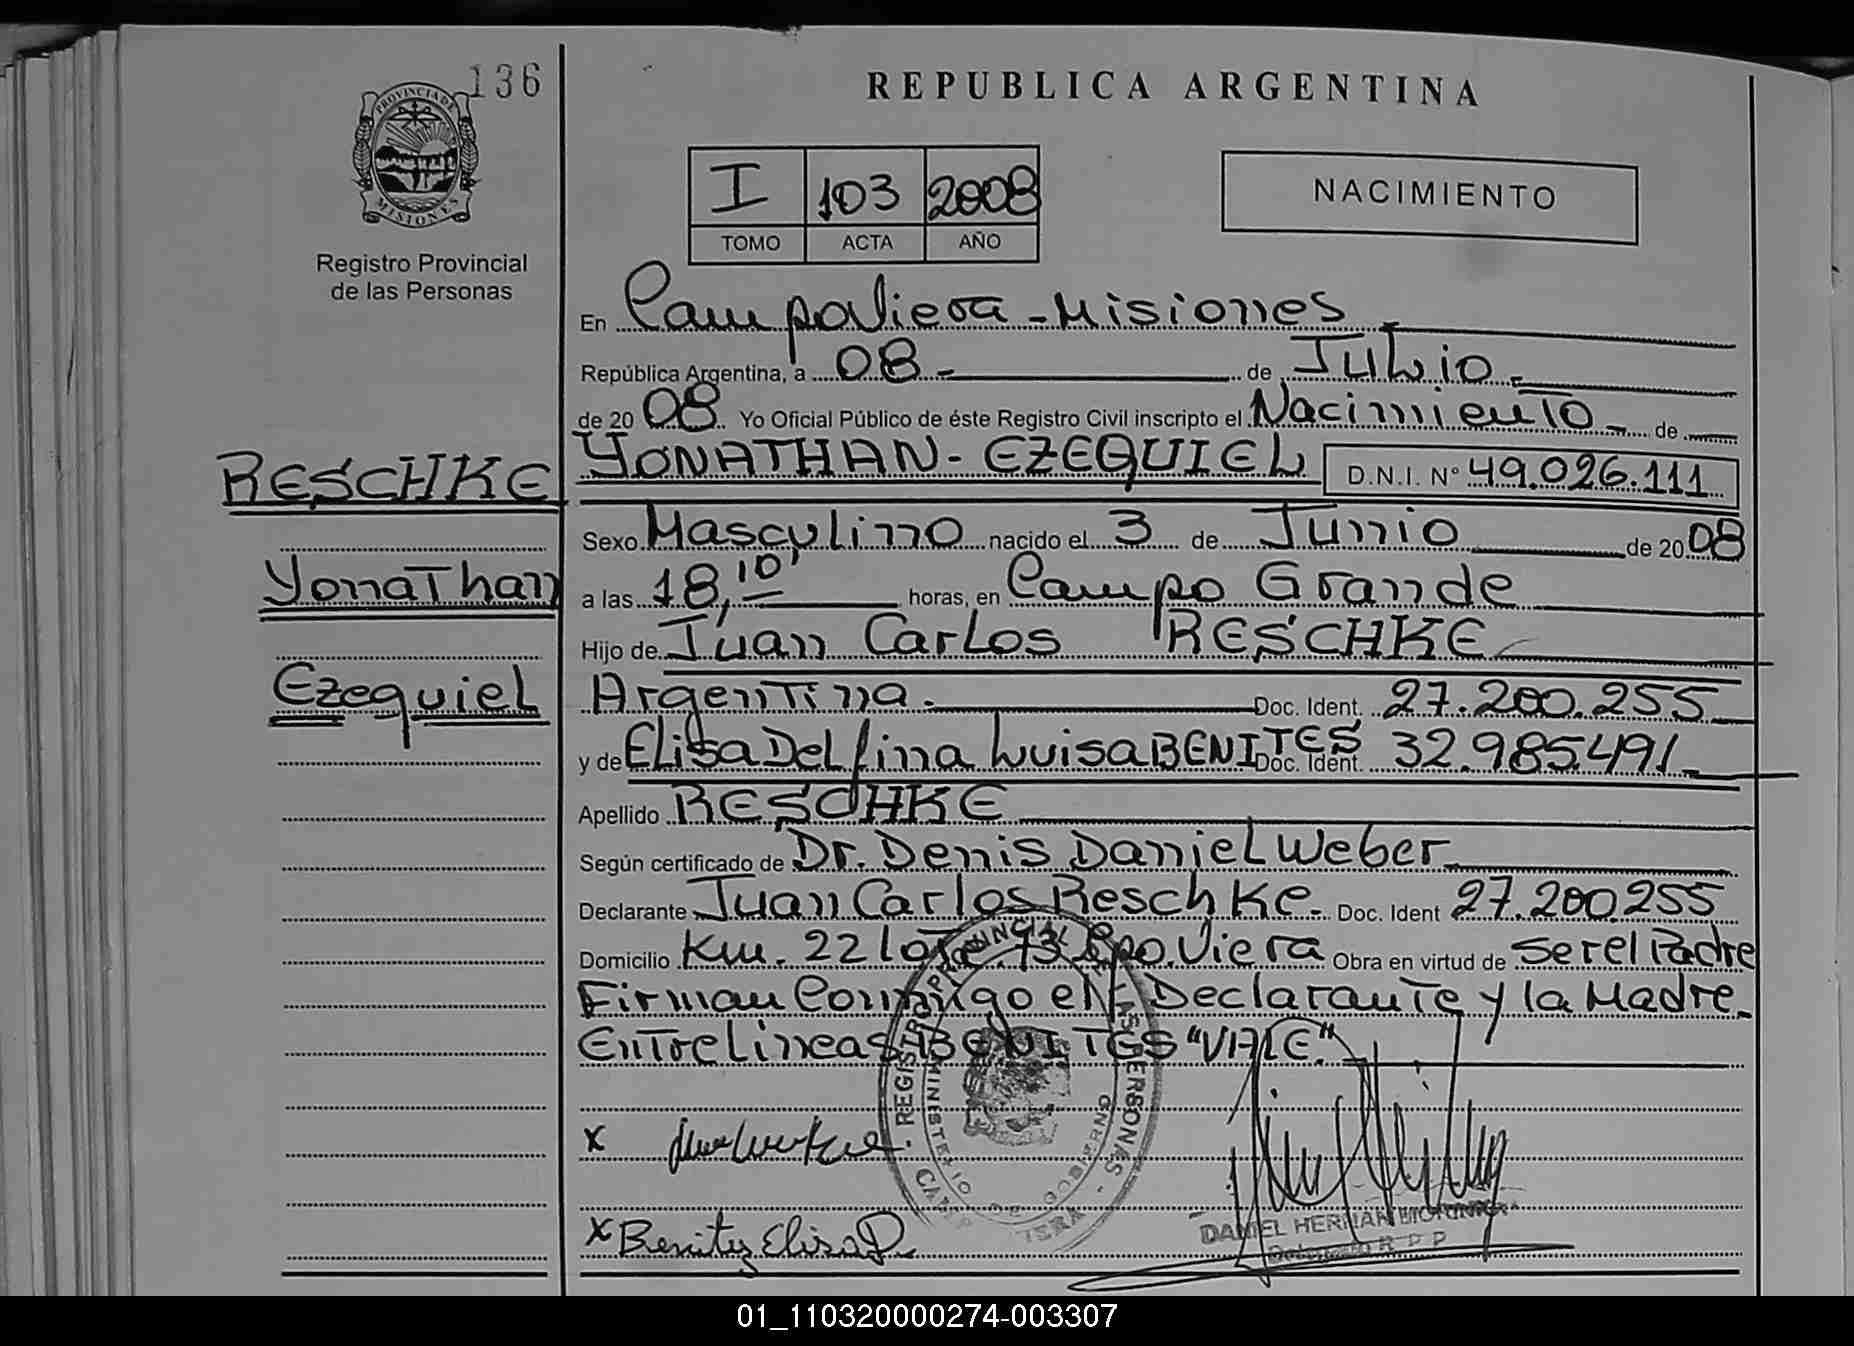 136
REPUBLICA ARGENTINA
PROVINCIA DE
MISIONES
Registro Provincial
de las Personas
I 103 2008
TOMO ACTA AÑO
NACIMIENTO
En Campo Viera - Misiones
República Argentina, a 08 - de Julio -
de 2008 Yo Oficial Público de éste Registro Civil inscripto el Nacimiento - de
RESCHKE
Yonathan
Ezequiel
YONATHAN - EZEQUIEL D.N.I. N° 49.026.111
Sexo Masculino nacido el 3 de Junio de 2008
a las 18,10' horas, en Campo Grande
Hijo de Juan Carlos RESCHKE
Argentina. Doc. Ident. 27.200.255
y de Elisa Delfina Luisa BENITES Doc. Ident. 32.985.491
Apellido RESCHKE
Según certificado de Dr. Denis Daniel Weber
Declarante Juan Carlos Reschke. Doc. Ident 27.200.255
Domicilio Km. 22 lote 13 Cpo. Viera Obra en virtud de ser el Padre
Firman Conmigo el Declarante y la Madre.
Entre lineas BENITES "VALE."
REGISTRO PROVINCIAL LAS PERSONAS
MINISTERIO DE GOBIERNO
x
x Benitez Elisa D.
DANIEL HERNAN
Delegado R P P
01_110320000274-003307